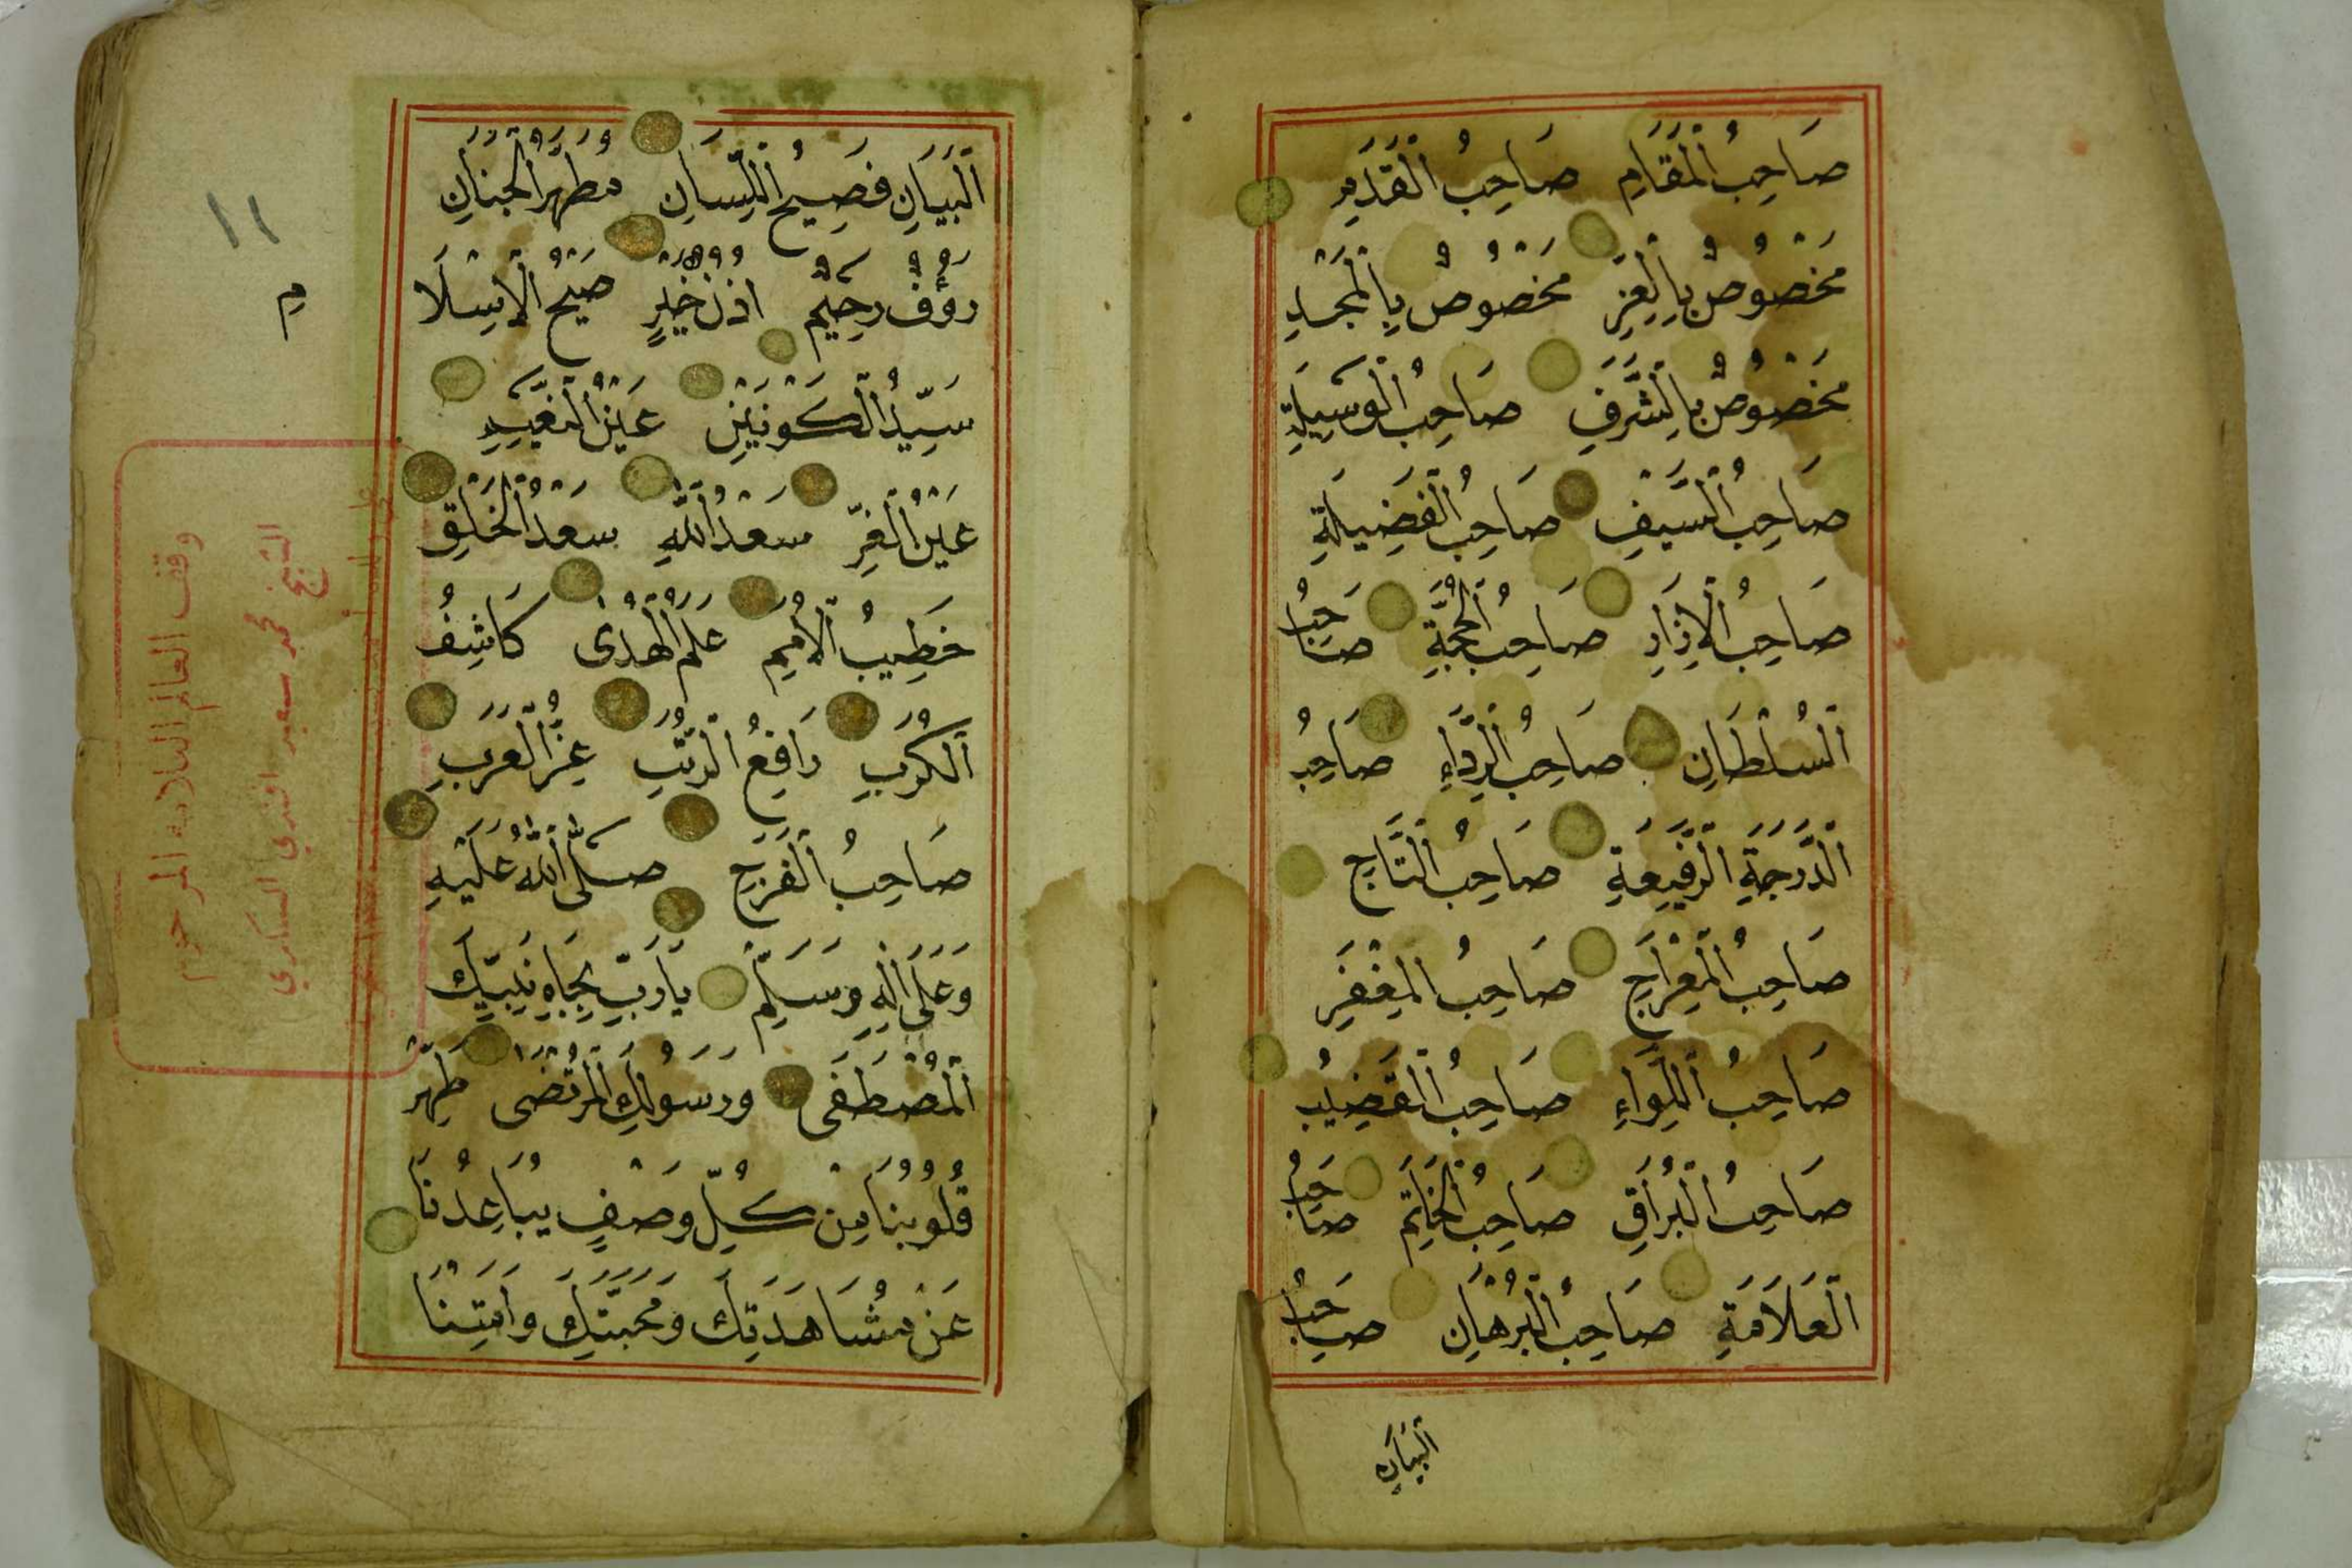 صَاحِبُ الْمَقَامِ صَاحِبُ الْقَدَمِ
مَخْصُوصٌ بِالْعِزِّ مَخْصُوصٌ بِالْمَجْدِ
مَخْصُوصٌ بِالشَّرَفِ صَاحِبُ الْوَسِيلَةِ
صَاحِبُ السَّيْفِ صَاحِبُ الْفَضِيلَةِ
صَاحِبُ الْإِزَارِ صَاحِبُ الْحُجَّةِ صَاحِبُ
السُّلْطَانِ صَاحِبُ الرِّدَاءِ صَاحِبُ
الدَّرَجَةِ الرَّفِيعَةِ صَاحِبُ التَّاجِ
صَاحِبُ الْمِعْرَاجِ صَاحِبُ الْمِغْفَرِ
صَاحِبُ اللِّوَاءِ صَاحِبُ الْقَضِيبِ
صَاحِبُ الْبُرَاقِ صَاحِبُ الْخَاتَمِ صَاحِبُ
الْعَلَامَةِ صَاحِبُ الْبُرْهَانِ صَاحِبُ
الْبَيَانِ
الْبَيَانِ فَصِيحُ اللِّسَانِ مُطَهَّرُ الْجَنَانِ
رَؤُفٌ رَحِيمٌ اُذُنُ خَيْرٍ صَحِيحُ الْإِسْلَا
مِ
سَيِّدُ الْكَوْنَيْنِ عَيْنُ النَّعِيمِ
عَيْنُ الْغُرِّ سَعْدُ اللَّهِ سَعْدُ الْخَلْقِ
خَطِيبُ الْأُمَمِ عَلَمُ الْهُدَى كَاشِفُ
الْكُرَبِ رَافِعُ الرُّتَبِ عِزُّ الْعَرَبِ
صَاحِبُ الْفَرَجِ صَلَّى اللَّهُ عَلَيْهِ
وَعَلَى اٰلِهِ وَسَلَّمَ يَا رَبِّ بِجَاهِ نَبِيِّكَ
الْمُصْطَفَى وَرَسُولِكَ الْمُرْتَضَى طَهِّرْ
قُلُوبَنَا مِنْ كُلِّ وَصْفٍ يُبَاعِدُنَا
عَنْ مُشَاهَدَتِكَ وَمَحَبَّتِكَ وَأَمِتْنَا
١١
وقف العالم العلامة المرحوم
الشيخ محمد سعيد افندي السكري